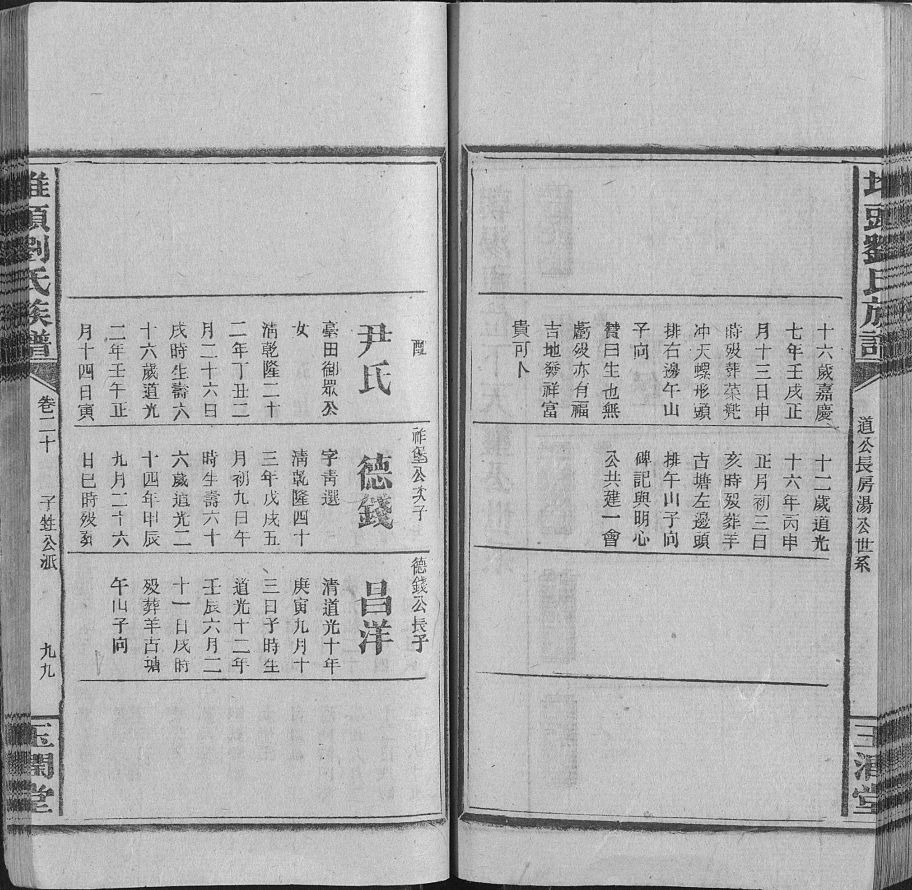 道公長房湯公世系
十六歲嘉慶
七年壬戌正
月十三日申
時歿葬菜兜
冲天螺形頭
排右邊午山
子向
贊曰生也無
虧歿亦有福
吉地發祥富
貴可卜
十二歲道光
十六年丙申
正月初三日
亥時歿葬羊
古塘左邊頭
排午山子向
碑記與明心
公共建一會
霞
尹氏
藁田御眾公
女
清乾隆二十
二年丁丑二
月二十六日
戌時生壽六
十六歲道光
二年壬午正
月十四日寅
祚堡公次子
德錢
字青選
清乾隆四十
三年戊戌五
月初九日午
時生壽六十
六歲道光二
十四年甲辰
九月二十六
日巳時歿葬
德錢公長子
昌洋
清道光十年
庚寅九月十
三日子時生
道光十二年
壬辰六月二
十一日戌時
歿葬羊古塘
午山子向
堆頭劉氏族譜
卷二十
子甡公派
九九
玉潤堂